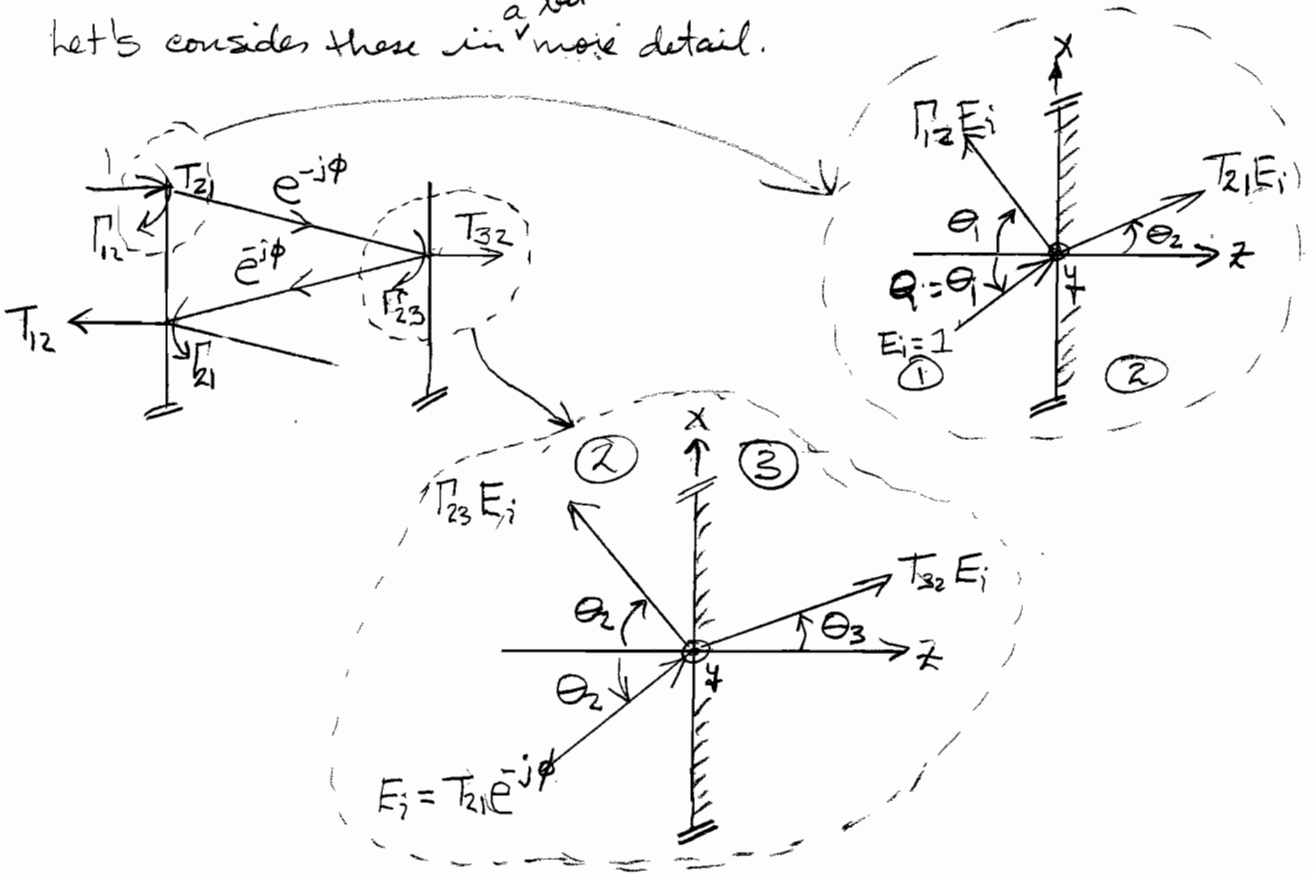 a bit
Let's consider these in more detail.
1
T₂₁
e^{-jφ}
Γ₁₂
T₃₂
e^{-jφ}
Γ₂₃
T₁₂
Γ₂₁
x
Γ₁₂Eᵢ
T₂₁Eᵢ
θ₁
θ₂
z
θᵢ=θ₁
y
Eᵢ=1
①
②
x
②
③
Γ₂₃Eᵢ
T₃₂Eᵢ
θ₂
θ₃
z
θ₂
y
Eᵢ = T₂₁e^{-jφ}